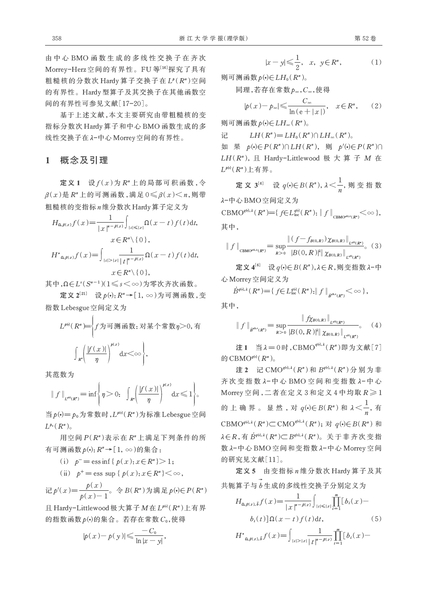 358
浙 江 大 学 学 报(理学版)
第 52 卷
由中心 BMO 函数生成的多线性交换子在齐次
Morrey-Herz 空间的有界性。FU 等[16]探究了具有
粗糙核的分数次 Hardy 算子交换子在 Lᵖ(Rⁿ)空间
的有界性。Hardy 型算子及其交换子在其他函数空
间的有界性可参见文献[17-20]。
基于上述文献,本文主要研究由带粗糙核的变
指标分数次 Hardy 算子和中心 BMO 函数生成的多
线性交换子在 λ-中心 Morrey 空间的有界性。
1 概念及引理
定义 1 设 f(x) 为 Rⁿ 上的局部可积函数,令
β(x) 是 Rⁿ 上的可测函数,满足 0≤β(x)<n,则带
粗糙核的变指标 n 维分数次 Hardy 算子定义为
H_{Ω,β(x)} f(x) = 1/|x|^{n-β(x)} ∫_{|t|≤|x|} Ω(x-t) f(t) dt,
x∈Rⁿ\{0},
H*_{Ω,β(x)} f(x) = ∫_{|t|>|x|} 1/|t|^{n-β(x)} Ω(x-t) f(t) dt,
x∈Rⁿ\{0},
其中,Ω∈Lˢ(Sⁿ⁻¹)(1≤s<∞)为零次齐次函数。
定义 2 设 p(•):Rⁿ→[1, ∞)为可测函数,变
指数 Lebesgue 空间定义为
L^{p(•)}(Rⁿ)={f 为可测函数:对某个常数 η>0,有
∫_{Rⁿ}(|f(x)|/η)^{p(x)} dx<∞},
其范数为
‖f‖_{L^{p(•)}(Rⁿ)}=inf{η>0: ∫_{Rⁿ}(|f(x)|/η)^{p(x)} dx≤1}。
当 p(•)=p₀ 为常数时,L^{p(•)}(Rⁿ)为标准 Lebesgue 空间
L^{p₀}(Rⁿ)。
用空间 P(Rⁿ)表示在 Rⁿ 上满足下列条件的所
有可测函数 p(•):Rⁿ→[1, ∞)的集合:
(i) p⁻=ess inf { p(x):x∈Rⁿ}>1;
(ii) p⁺=ess sup { p(x):x∈Rⁿ}<∞,
记 p′(x)=p(x)/(p(x)-1)。令 B(Rⁿ)为满足 p(•)∈P(Rⁿ)
且 Hardy-Littlewood 极大算子 M 在 L^{p(•)}(Rⁿ)上有界
的指数函数 p(•)的集合。若存在常数 C₀,使得
|p(x)-p(y)|≤-C₀/ln|x-y|,
|x-y|≤1/2, x, y∈Rⁿ, (1)
则可测函数 p(•)∈LH₀(Rⁿ)。
同理,若存在常数 p∞,C∞,使得
|p(x)-p∞|≤C∞/ln(e+|x|), x∈Rⁿ, (2)
则可测函数 p(•)∈LH∞(Rⁿ)。
记 LH(Rⁿ)=LH₀(Rⁿ)∩LH∞(Rⁿ)。
如果 p(•)∈P(Rⁿ)∩LH(Rⁿ), 则 p′(•)∈P(Rⁿ)∩
LH(Rⁿ), 且 Hardy-Littlewood 极大算子 M 在
L^{p(•)}(Rⁿ)上有界。
定义 3 设 q(•)∈B(Rⁿ),λ<1/n, 则变指数
λ-中心 BMO 空间定义为
CBMO^{q(•),λ}(Rⁿ)={f∈L^{q(•)}_{loc}(Rⁿ):‖f‖_{CBMO^{q(•),λ}(Rⁿ)}<∞},
其中,
‖f‖_{CBMO^{q(•),λ}(Rⁿ)}=sup_{R>0} ‖(f-f_{B(0,R)})χ_{B(0,R)}‖_{L^{q(•)}(Rⁿ)}/(|B(0,R)|^λ‖χ_{B(0,R)}‖_{L^{q(•)}(Rⁿ)})。(3)
定义 4 设 q(•)∈B(Rⁿ),λ∈R,则变指数 λ-中
心 Morrey 空间定义为
Ḃ^{q(•),λ}(Rⁿ)={f∈L^{q(•)}_{loc}(Rⁿ):‖f‖_{Ḃ^{q(•),λ}(Rⁿ)}<∞},
其中,
‖f‖_{Ḃ^{q(•),λ}(Rⁿ)}=sup_{R>0} ‖fχ_{B(0,R)}‖_{L^{q(•)}(Rⁿ)}/(|B(0,R)|^λ‖χ_{B(0,R)}‖_{L^{q(•)}(Rⁿ)})。 (4)
注 1 当 λ=0 时,CBMO^{q(•),λ}(Rⁿ)即为文献[7]
的 CBMO^{q(•)}(Rⁿ)。
注 2 记 CMO^{q(•),λ}(Rⁿ)和 B^{q(•),λ}(Rⁿ)分别为非
齐次变指数 λ-中心 BMO 空间和变指数 λ-中心
Morrey 空间,二者在定义 3 和定义 4 中均取 R≥1
的上确界。显然,对 q(•)∈B(Rⁿ)和 λ<1/n,有
CBMO^{q(•),λ}(Rⁿ)⊂CMO^{q(•),λ}(Rⁿ);对 q(•)∈B(Rⁿ)和
λ∈R,有 Ḃ^{q(•),λ}(Rⁿ)⊂B^{q(•),λ}(Rⁿ)。关于非齐次变指
数 λ-中心 BMO 空间和变指数 λ-中心 Morrey 空间
的研究见文献[11]。
定义 5 由变指标 n 维分数次 Hardy 算子及其
共轭算子与 b⃗ 生成的多线性交换子分别定义为
H_{Ω,β(x),b⃗} f(x)=1/|x|^{n-β(x)} ∫_{|t|≤|x|} ∏_{i=1}^{m}[b_i(x)-
b_i(t)]Ω(x-t) f(t)dt, (5)
H*_{Ω,β(x),b⃗} f(x)=∫_{|t|>|x|} 1/|t|^{n-β(x)} ∏_{i=1}^{m}[b_i(x)-